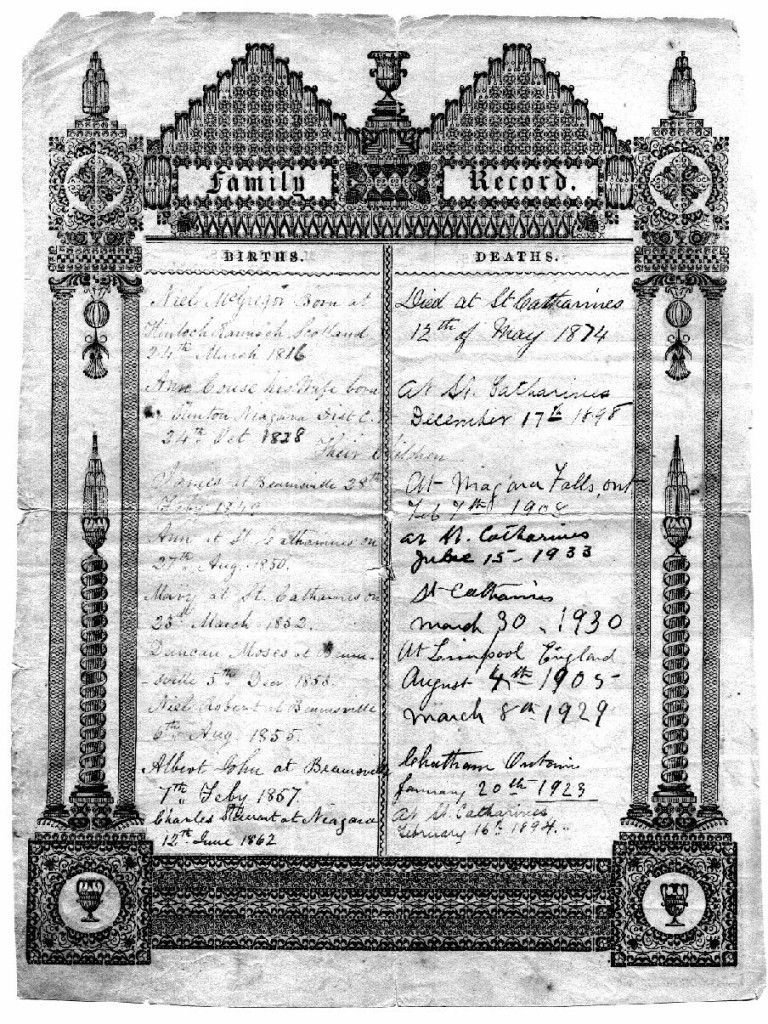 Family Record.
BIRTHS.
Niel McGrigor Born at
Kinloch Rannoch Scotland
24th March 1816
Ann Couse his Wife born
Niagara Dist C.
24th Oct 1828
Their Children
James at Beamsville 28th
Feby
Ann at St. Catharines on
27th Aug. 1850.
Mary at St. Catharines on
23rd March 1852.
Duncan Moses at Beams-
-ville 5th Decr 1853.
Niel Robert at Beamsville
6th Aug 1855.
Albert John at Beamsville
7th Feby 1857
Charles Stewart at Niagara
12th June 1862
DEATHS.
Died at St Catharines
12th of May 1874
At St. Catharines
December 17th 1898
At Niagara Falls, ont
Feb 7th 1908
at St. Catharines
June 15-1933
St Catharines
March 30, 1930
At Liverpool England
August 4th 1905
March 8th 1929
Chatham Ontario
January 20th 1923
At St. Catharines
February 16th 1894.